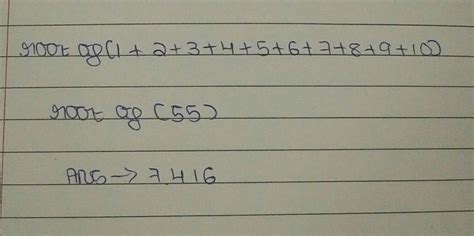 root of (1 + 2 + 3 + 4 + 5 + 6 + 7 + 8 + 9 + 10)
root of (55)
Ans → 7.416